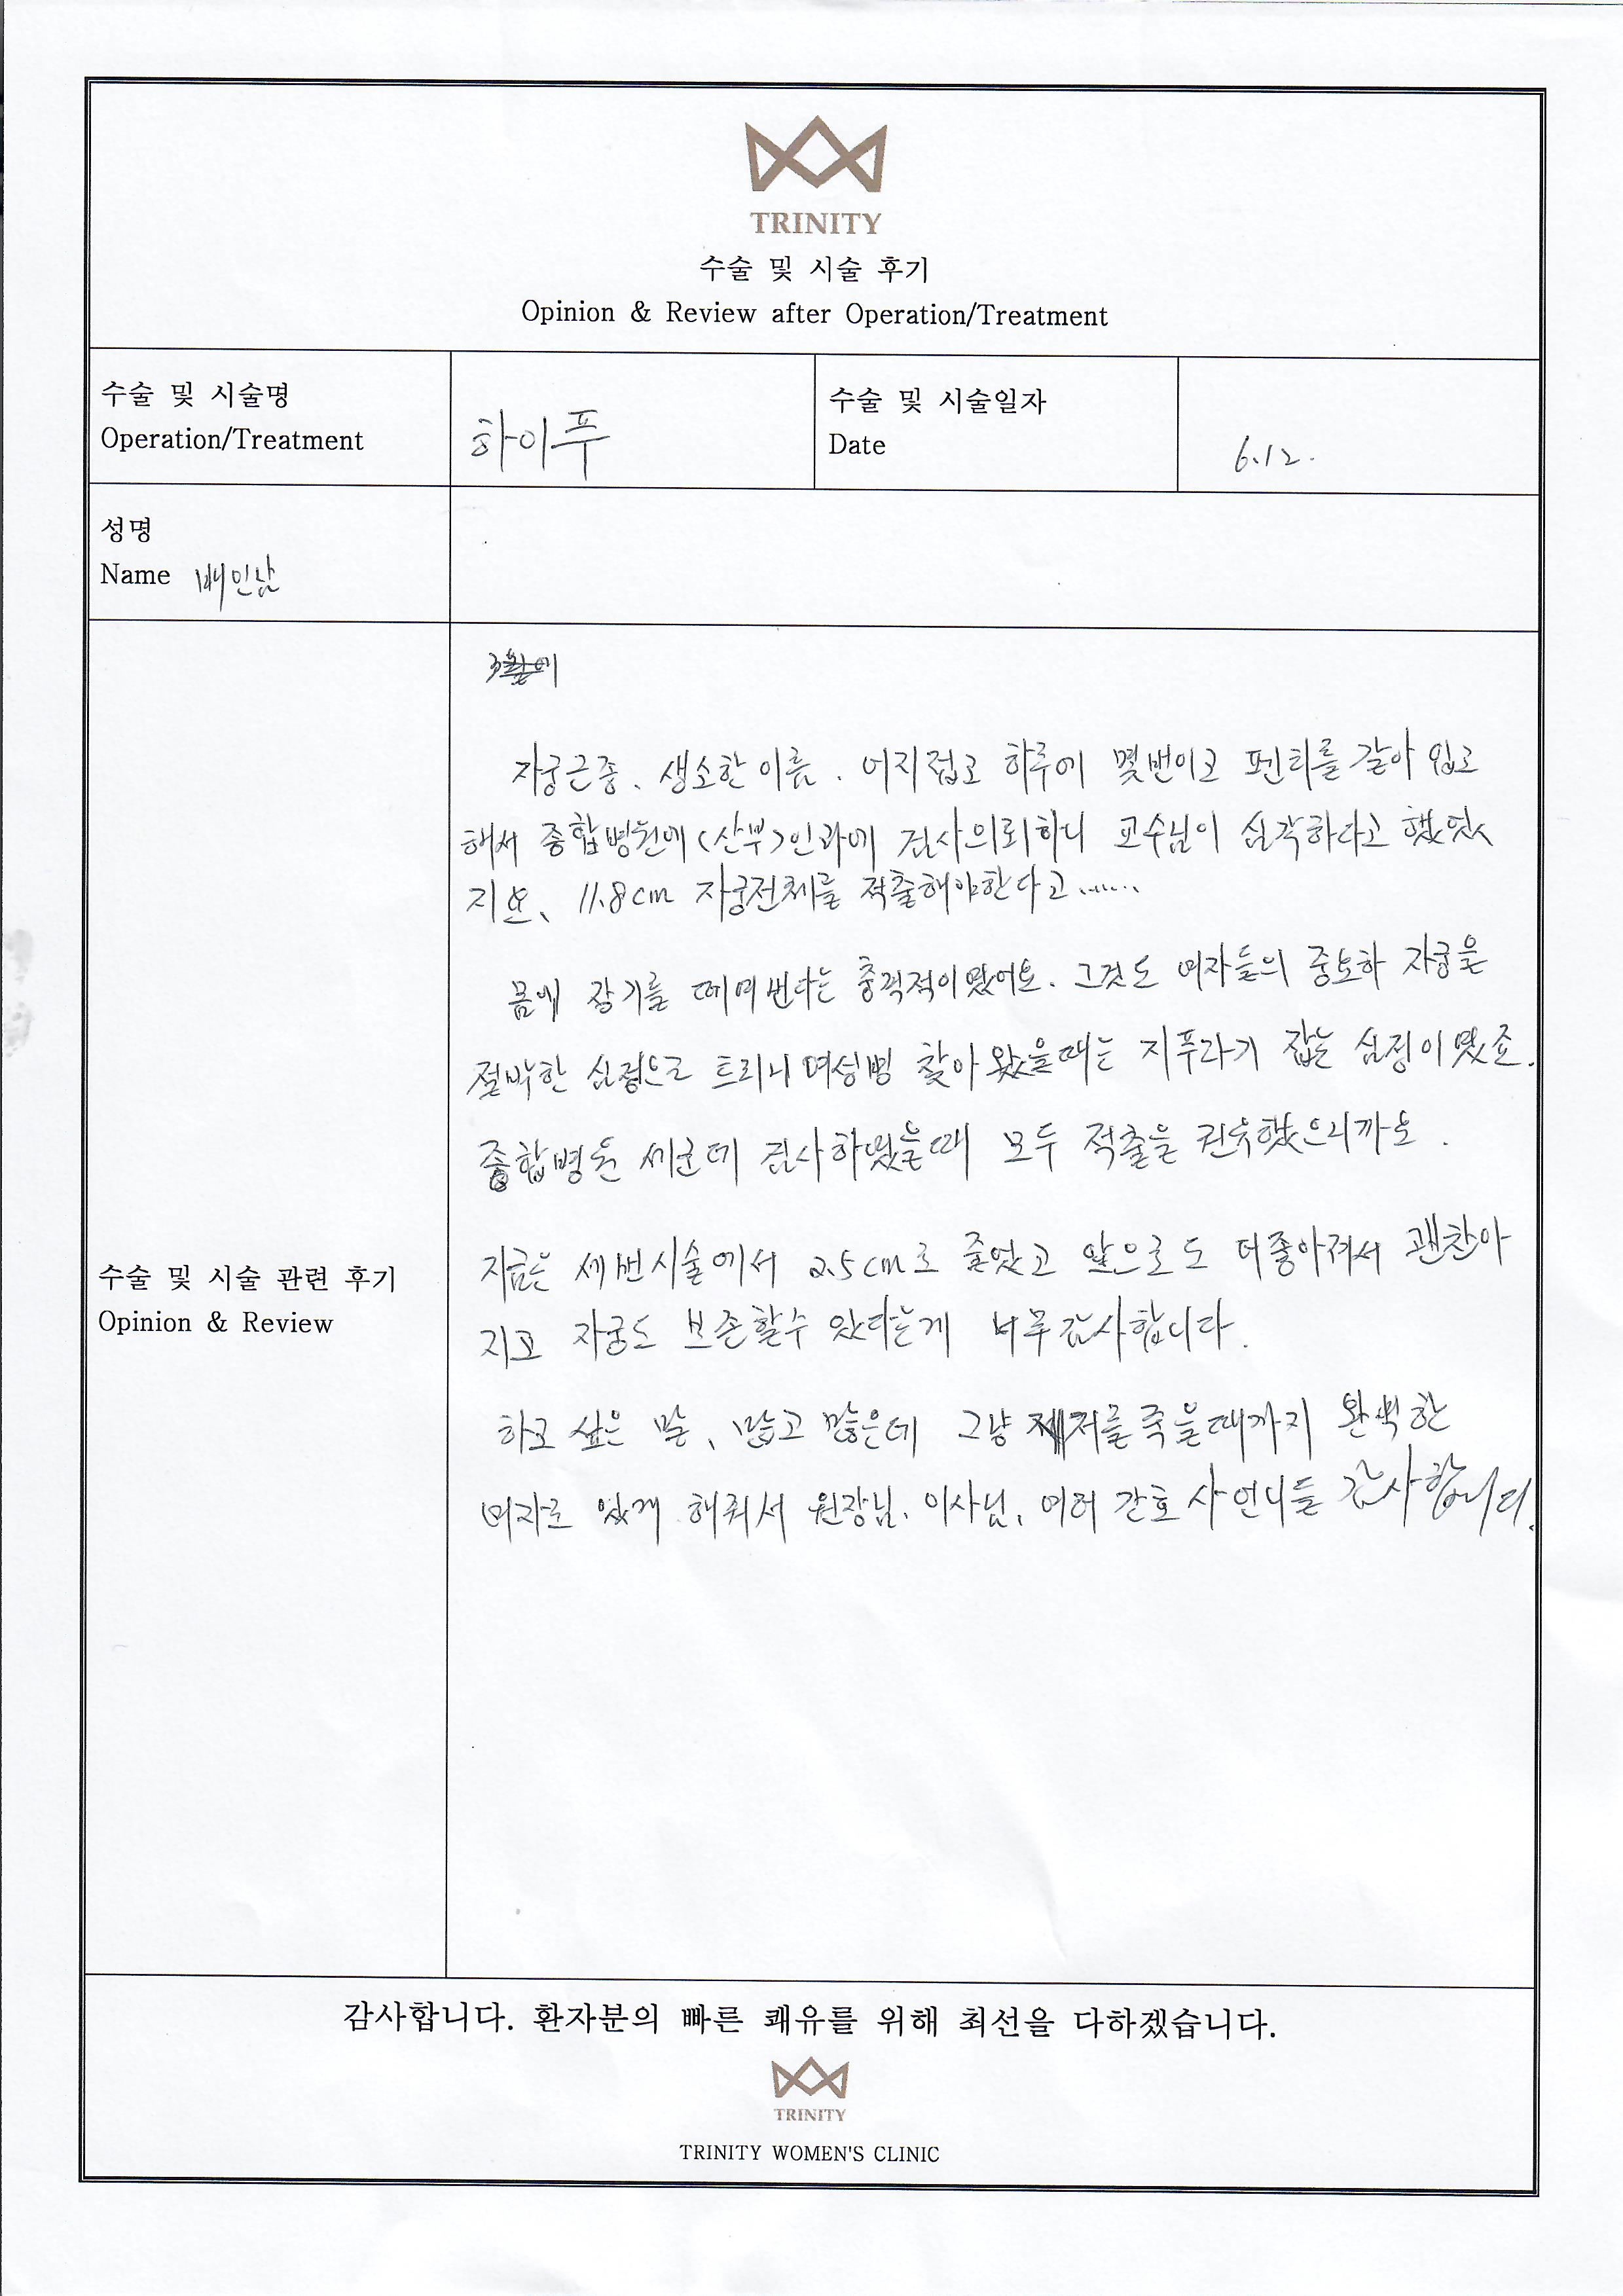 TRINITY
수술 및 시술 후기
Opinion & Review after Operation/Treatment
수술 및 시술명
Operation/Treatment
하이푸
수술 및 시술일자
Date
6.12.
성명
Name 배인남
자궁근종. 생소한 이름. 어지럽고 하루에 몇번이고 펜티를 갈아 입고
해서 종합병원에 (산부)인과에 검사의뢰하니 교수님이 심각하다고 했었
지요. 11.8cm 자궁전체를 적출해야한다고......
몸에 장기를 떼여 번다는 충격적이였어요. 그것도 여자들의 중요하 자궁을
절박한 심정으로 트리니 여성병 찾아 왔을때는 지푸라기 잡는 심정이였죠.
종합병원 세군데 검사하였을때 모두 적출을 권유했으니까요.
지금은 세번시술에서 2.5cm로 줄었고 앞으로도 더좋아져서 괜찬아
지고 자궁도 보존할수 있다는게 너무감사합니다.
하고 싶은 말, 많고 많은데 그냥 저를 죽을때까지 완벽한
여자로 있게 해줘서 원장님. 이사님, 여러 간호 사 언니들 감사합니다.
수술 및 시술 관련 후기
Opinion & Review
감사합니다. 환자분의 빠른 쾌유를 위해 최선을 다하겠습니다.
TRINITY
TRINITY WOMEN'S CLINIC